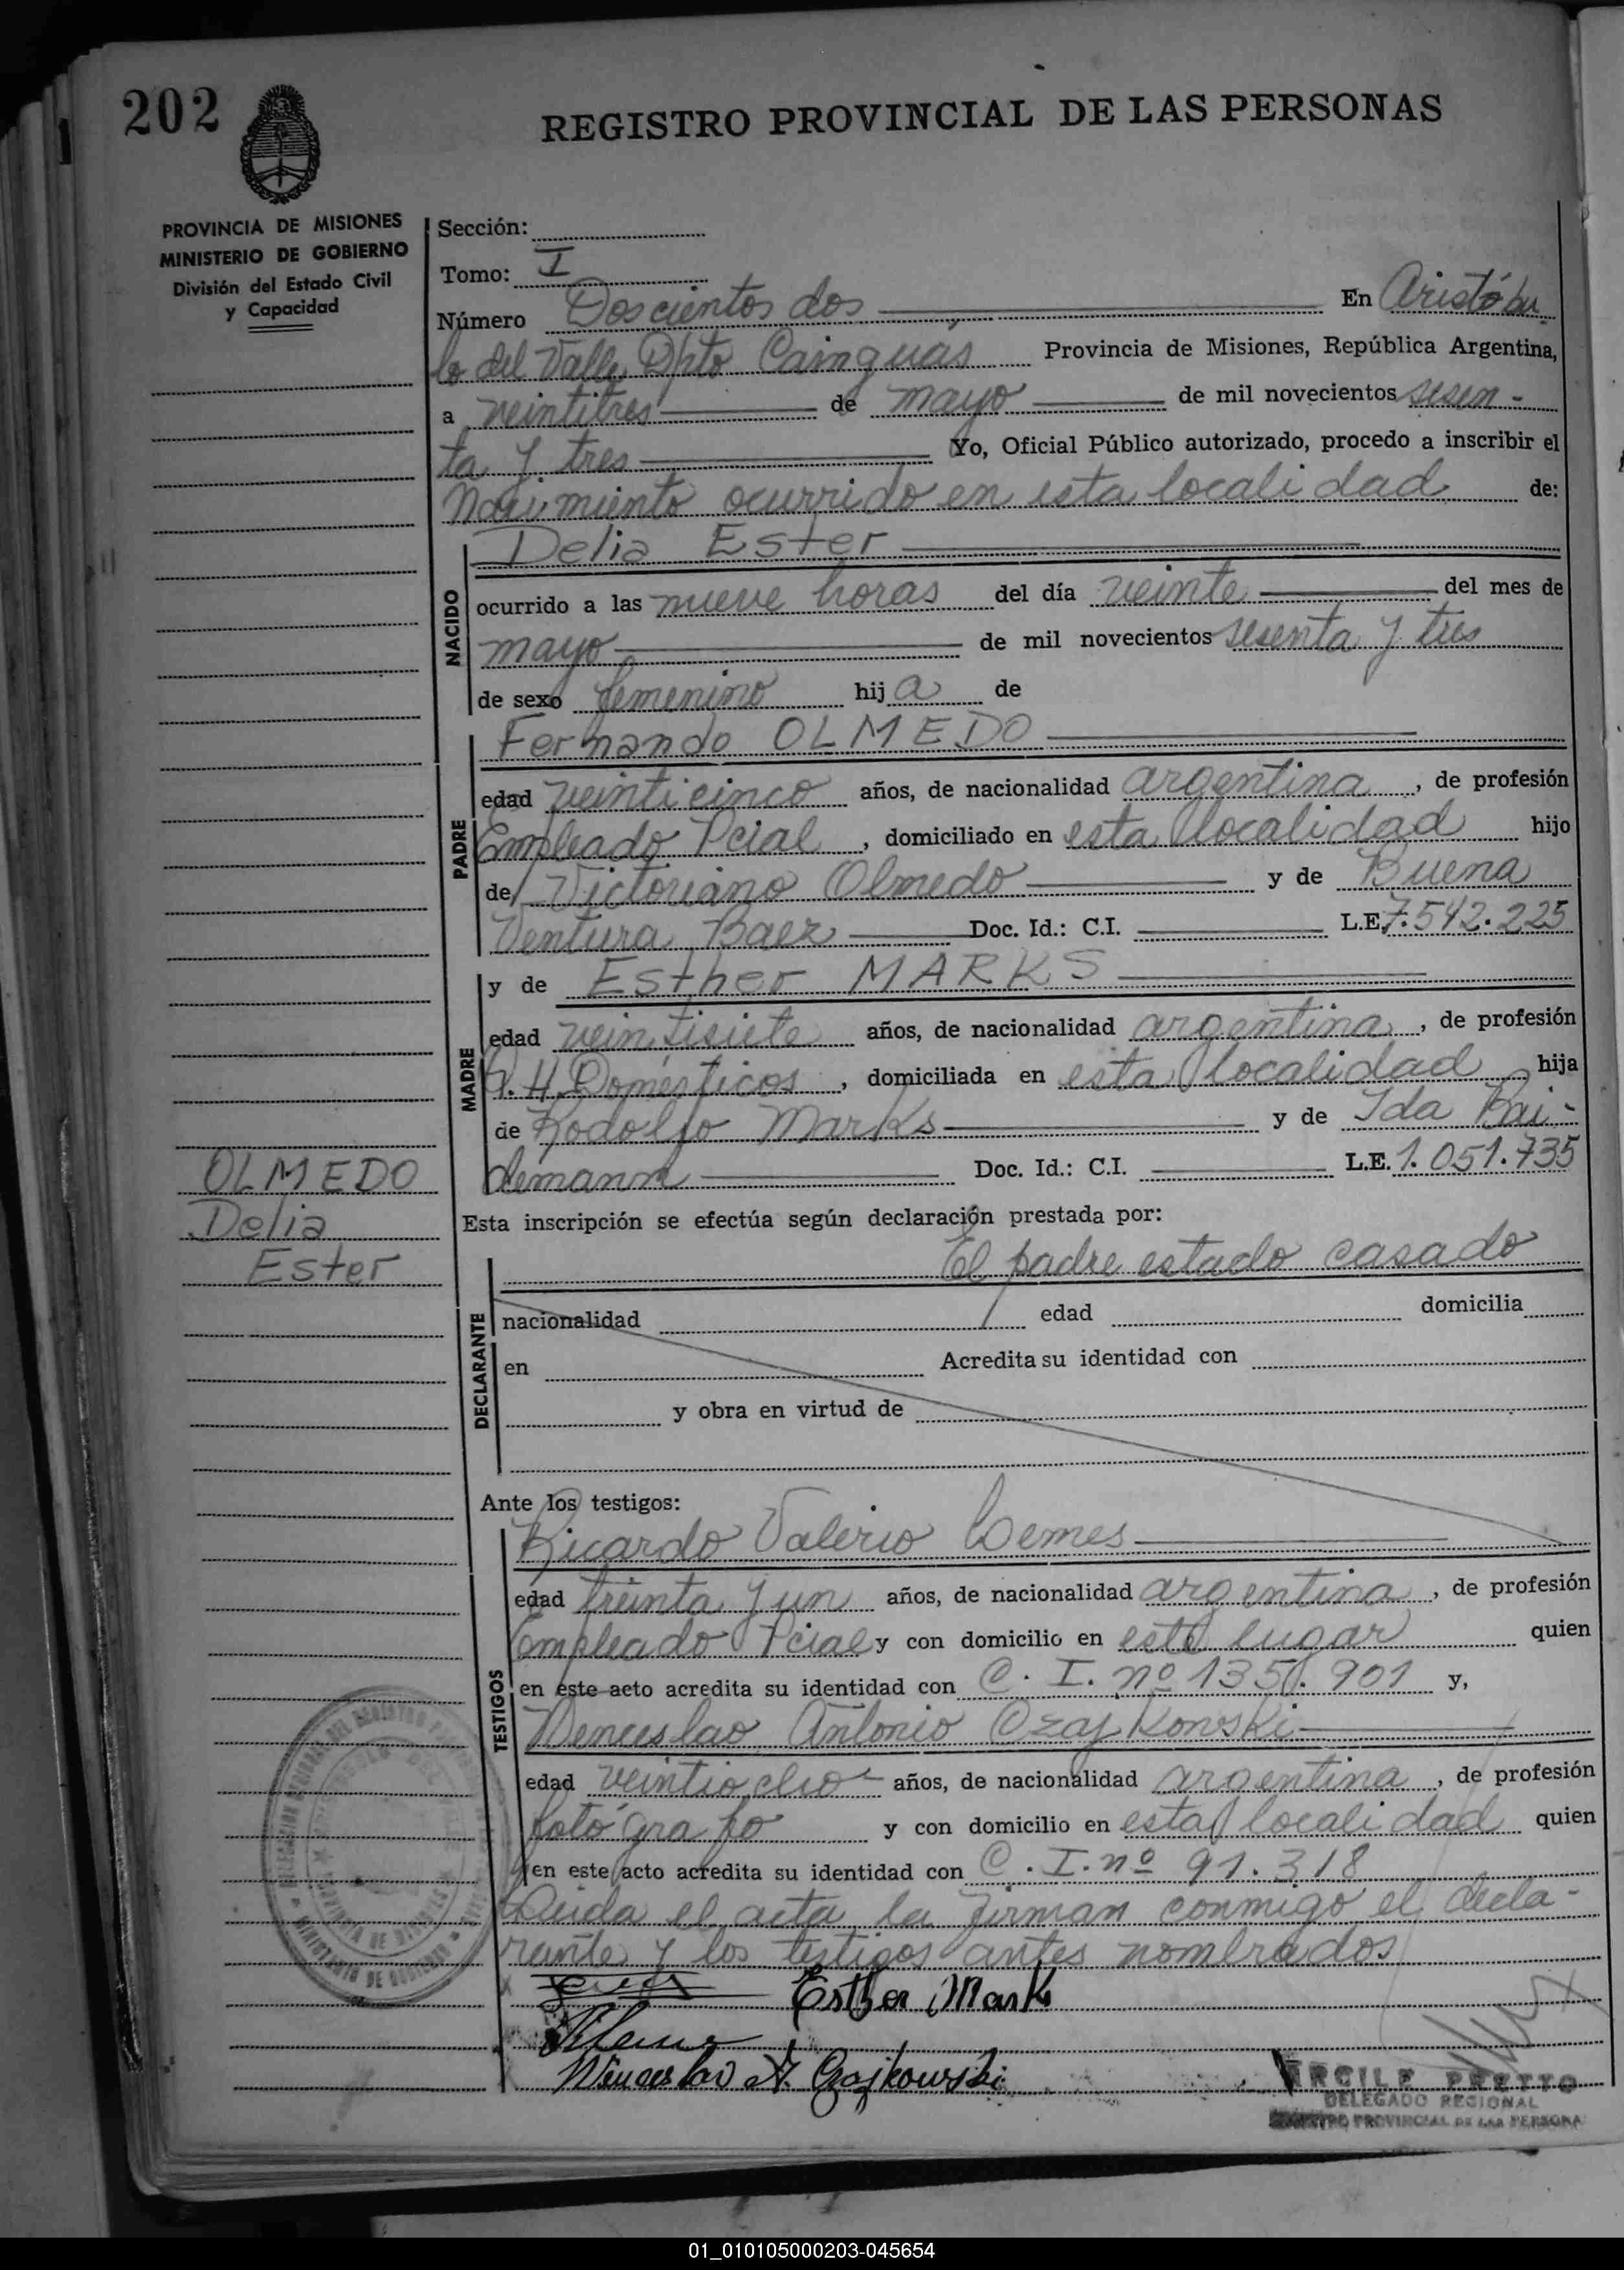 202
REGISTRO PROVINCIAL DE LAS PERSONAS
PROVINCIA DE MISIONES
MINISTERIO DE GOBIERNO
División del Estado Civil
y Capacidad
Sección:
Tomo: I
Número Doscientos dos En Aristóbu
lo del Valle Dpto Cainguás Provincia de Misiones, República Argentina,
a veintitres de mayo de mil novecientos sesen-
ta y tres Yo, Oficial Público autorizado, procedo a inscribir el
Nacimiento ocurrido en esta localidad de:
NACIDO
Delia Ester
ocurrido a las nueve horas del día veinte del mes de
mayo de mil novecientos sesenta y tres
de sexo femenino hija de
PADRE
Fernando OLMEDO
edad veinticinco años, de nacionalidad argentina, de profesión
Empleado Pcial, domiciliado en esta localidad hijo
de Victoriano Olmedo y de Buena
Ventura Baez Doc. Id.: C.I. L.E. 7.542.225
MADRE
y de Esther MARKS
edad veintisiete años, de nacionalidad argentina, de profesión
Q. H. Domésticos, domiciliada en esta localidad hija
de Rodolfo Marks y de Ida Rai-
demann Doc. Id.: C.I. L.E. 1.051.735
OLMEDO
Delia
Ester
Esta inscripción se efectúa según declaración prestada por:
DECLARANTE
El padre estado casado
nacionalidad edad domicilia
en Acredita su identidad con
y obra en virtud de
Ante los testigos:
TESTIGOS
Ricardo Valerio Lemes
edad treinta y un años, de nacionalidad argentina, de profesión
Empleado Pcial y con domicilio en este lugar quien
en este acto acredita su identidad con C. I. nº 135.901 y,
Wenceslao Antonio Czajkowski
edad veintiocho años, de nacionalidad argentina, de profesión
fotógrafo y con domicilio en esta localidad quien
en este acto acredita su identidad con C. I. nº 91.318
Leida el acta, la firman conmigo el decla-
rante y los testigos antes nombrados
Esther Marks
Wenceslao A. Czajkowski
VIRGILE PRETTO
DELEGADO REGIONAL
REGISTRO PROVINCIAL DE LAS PERSONA
01_010105000203-045654